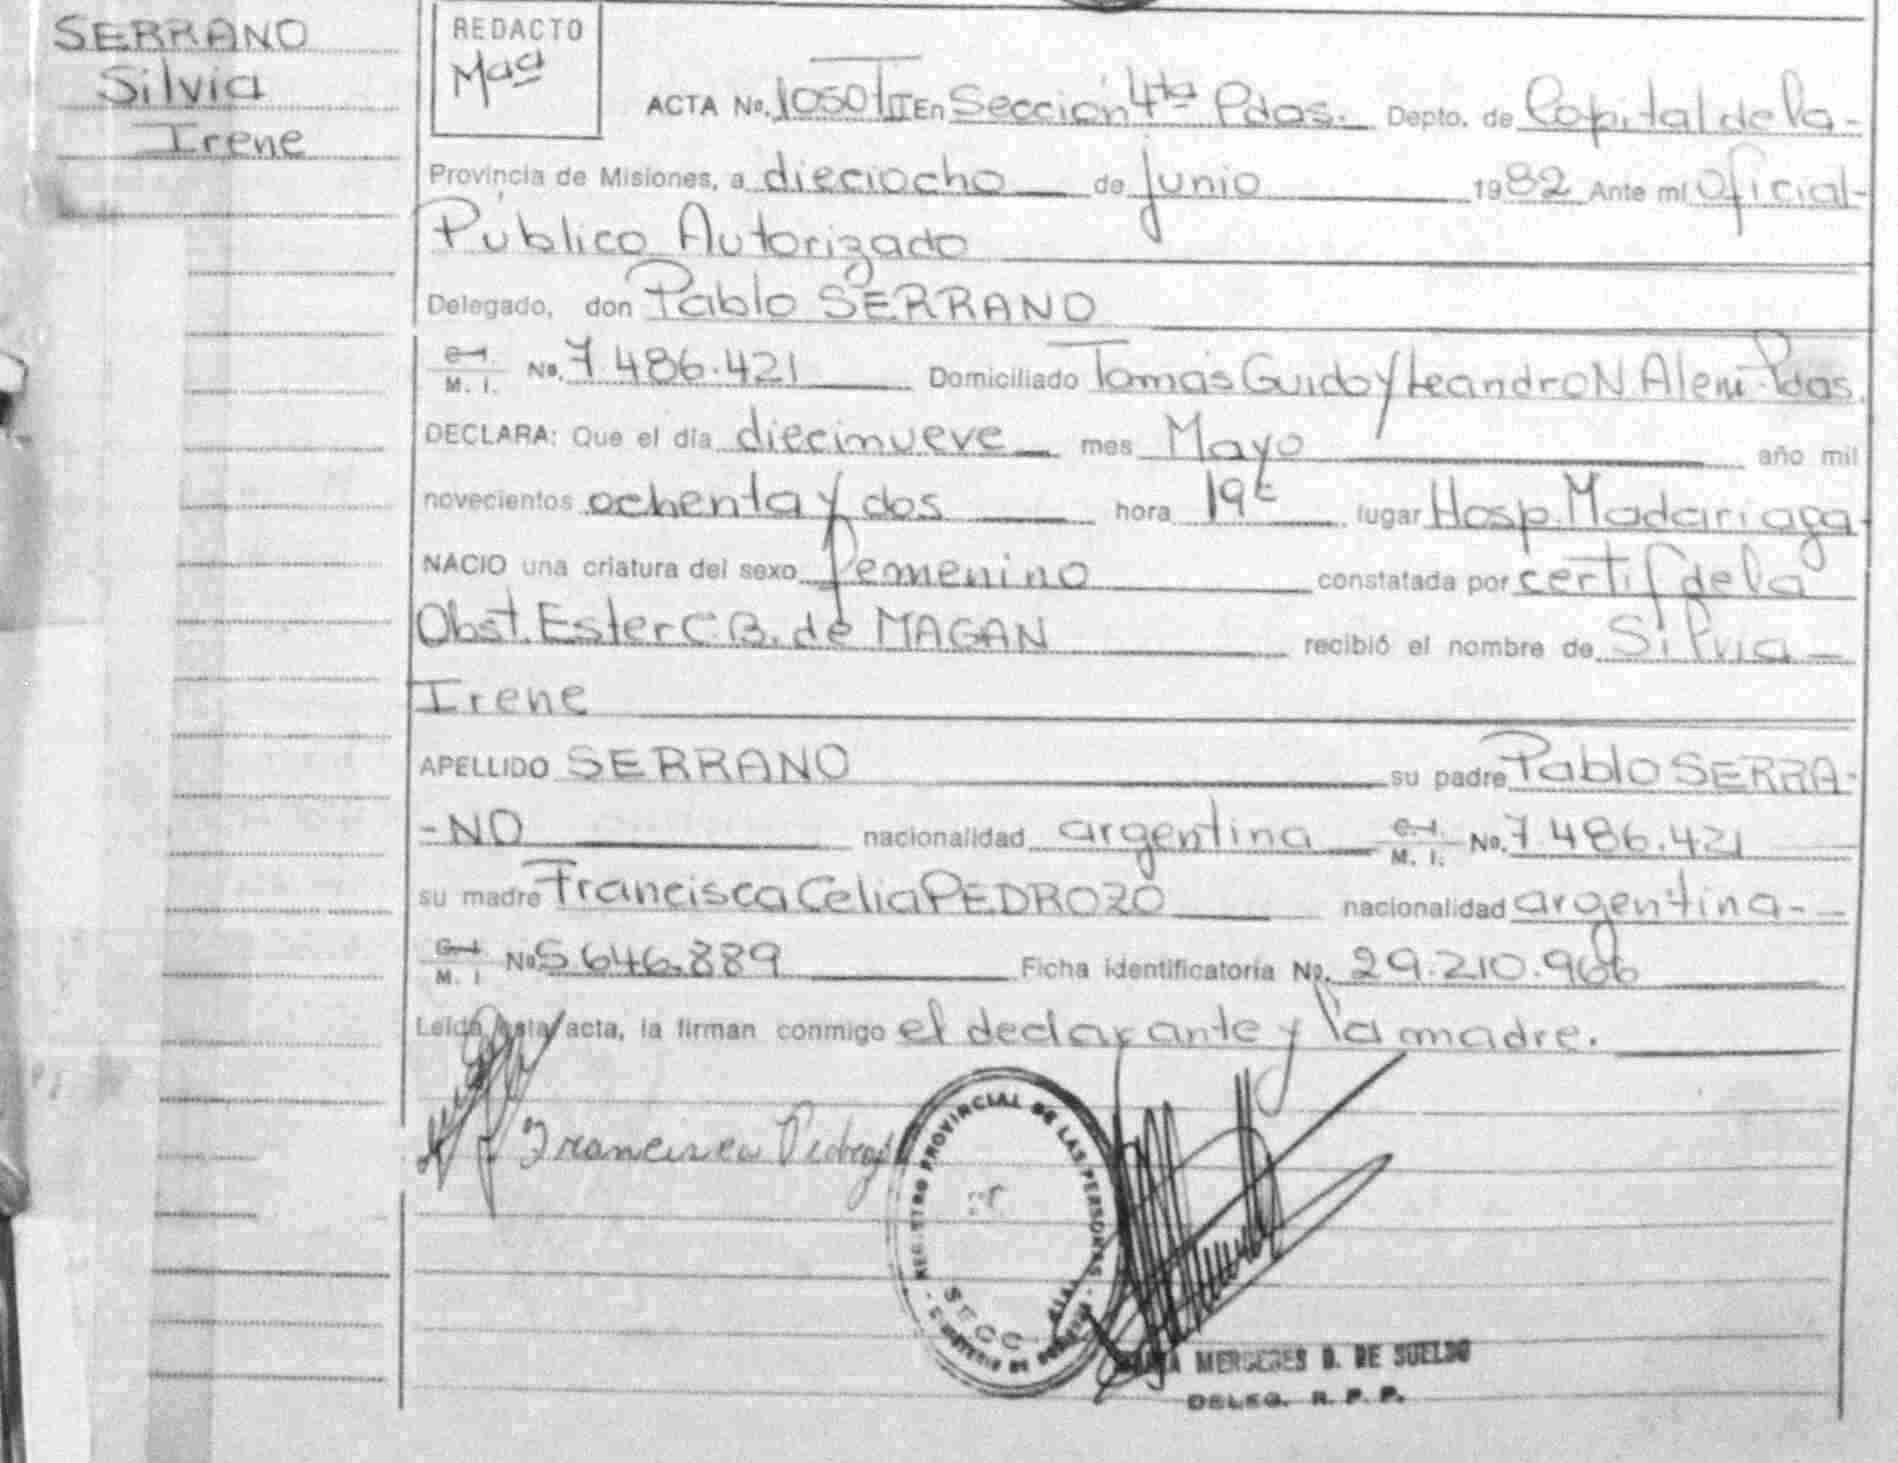 SERRANO
Silvia
Irene
REDACTO
Maa
ACTA No. 1050 TII En Sección 4ta Pdas. Depto. de Capital de la-
Provincia de Misiones, a dieciocho de junio 1982 Ante mí Oficial-
Público Autorizado
Delegado, don Pablo SERRANO
C.I. M. I. No. 7.486.421 Domiciliado Tomás Guido y Leandro N. Alem-Pdas.
DECLARA: Que el día diecinueve mes Mayo año mil
novecientos ochenta y dos hora 19 lugar Hosp. Madariaga-
NACIO una criatura del sexo femenino constatada por certif de la
Obst. Ester C.B. de MAGAN recibió el nombre de Silvia-
Irene
APELLIDO SERRANO su padre Pablo SERRA-
-NO nacionalidad argentina C.I. M. I. No. 7.486.421
su madre Francisca Celia PEDROZO nacionalidad argentina--
C.I. M. I No 5.646.889 Ficha identificatoria No. 29.210.966
Leída esta acta, la firman conmigo el declarante y la madre.
Francisca Pedrozo
REGISTRO PROVINCIAL DE LAS PERSONAS
SECC.
MERCEDES D. DE SUELDO
DELEG. R. P. P.